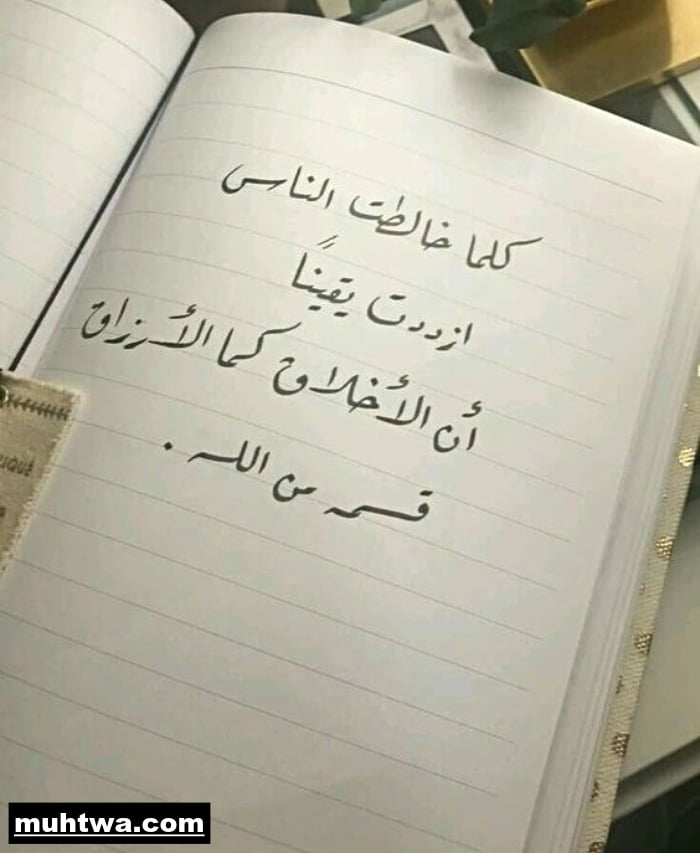 كلما خالطت الناس
ازددت يقينًا
أن الأخلاق كما الأرزاق
قسمه من الله .
muhtwa.com